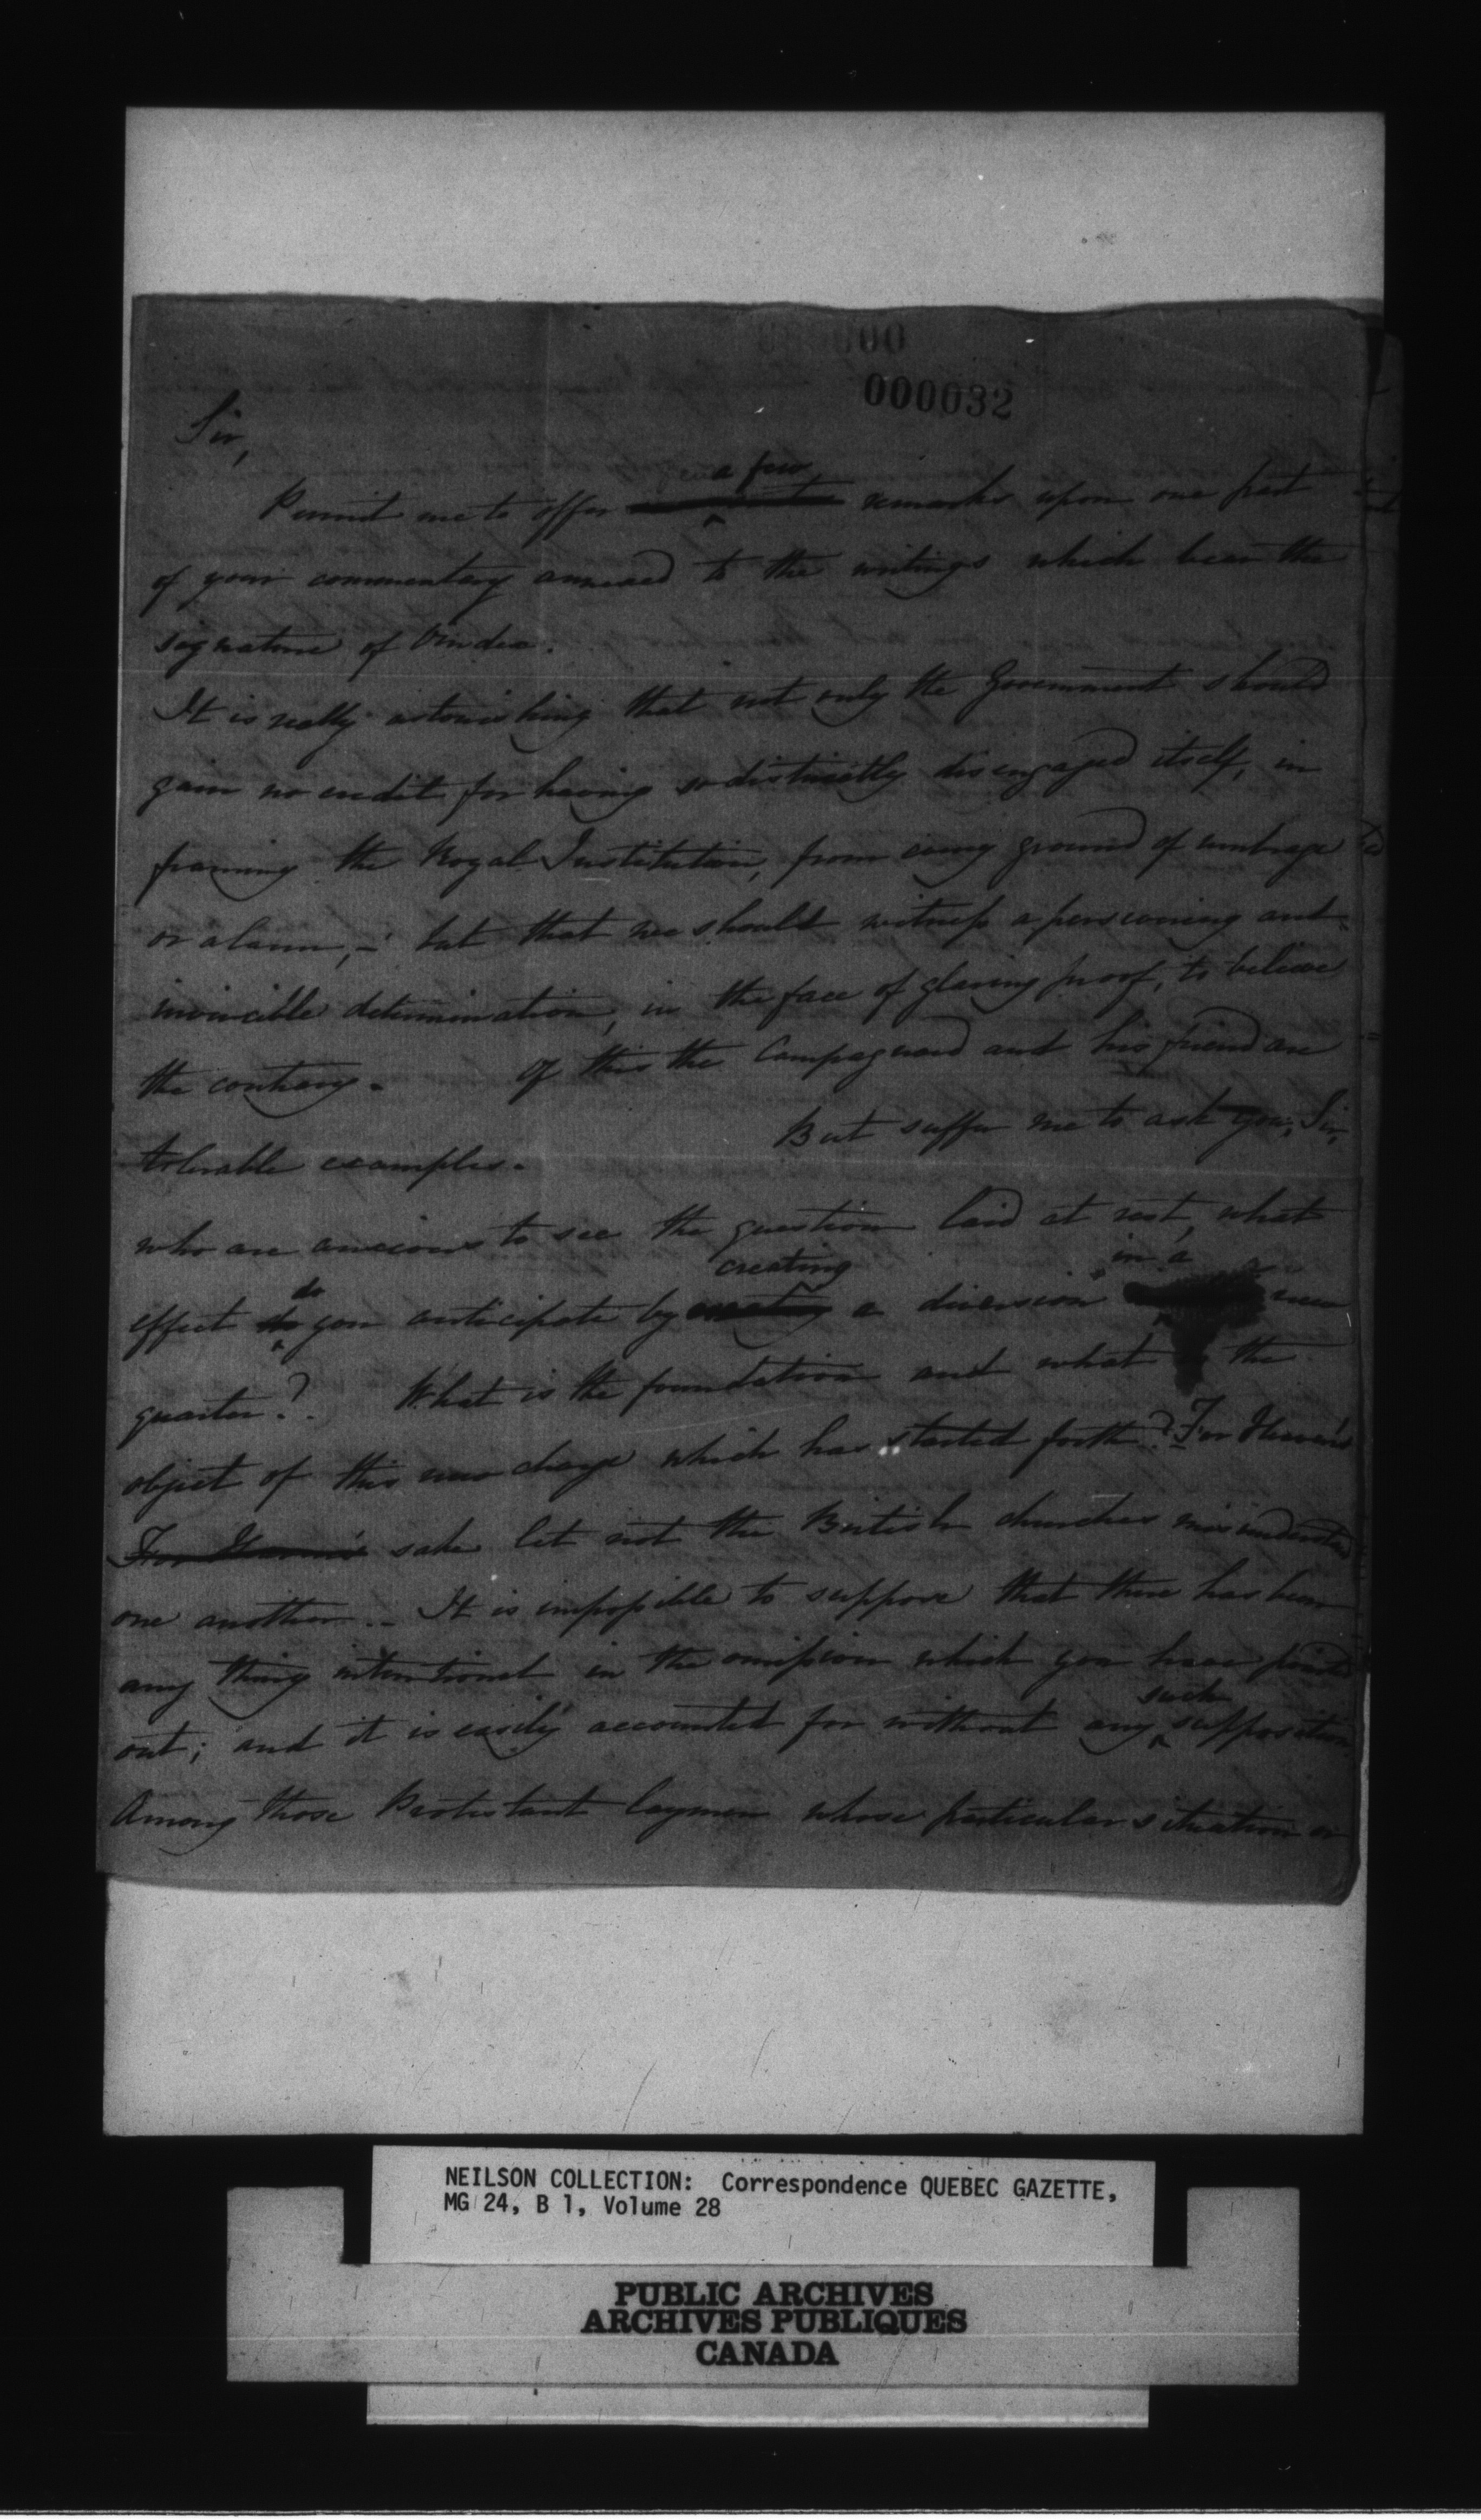 000032
Sir,
a few
Permit me to offer remarks upon one part
of your commentary annexed to the writings which bear the
signature of Vindex.
It is really astonishing that not only the Government should
gain no credit for having so distinctly disengaged itself, in
framing the Royal Institution, from every ground of umbrage
or alarm, – but that we should witness a persevering and
invincible determination, in the face of glaring proof, to believe
the contrary. Of this the Campagnard and his friend are
tolerable examples.
But suffer me to ask you, Sir,
who are anxious to see the question laid at rest, what
do creating in a
effect do you anticipate by a diversion new
quarter? What is the foundation and what the
object of this new charge which has started forth? For Heaven's
For Heaven's sake let not the British churches misunderstand
one another. – It is impossible to suppose that there has been
any thing intentional in the omission which you have pointed
such
out; and it is easily accounted for without any supposition.
Among those Protestant laymen whose particular situation or
NEILSON COLLECTION: Correspondence QUEBEC GAZETTE,
MG 24, B 1, Volume 28
PUBLIC ARCHIVES
ARCHIVES PUBLIQUES
CANADA